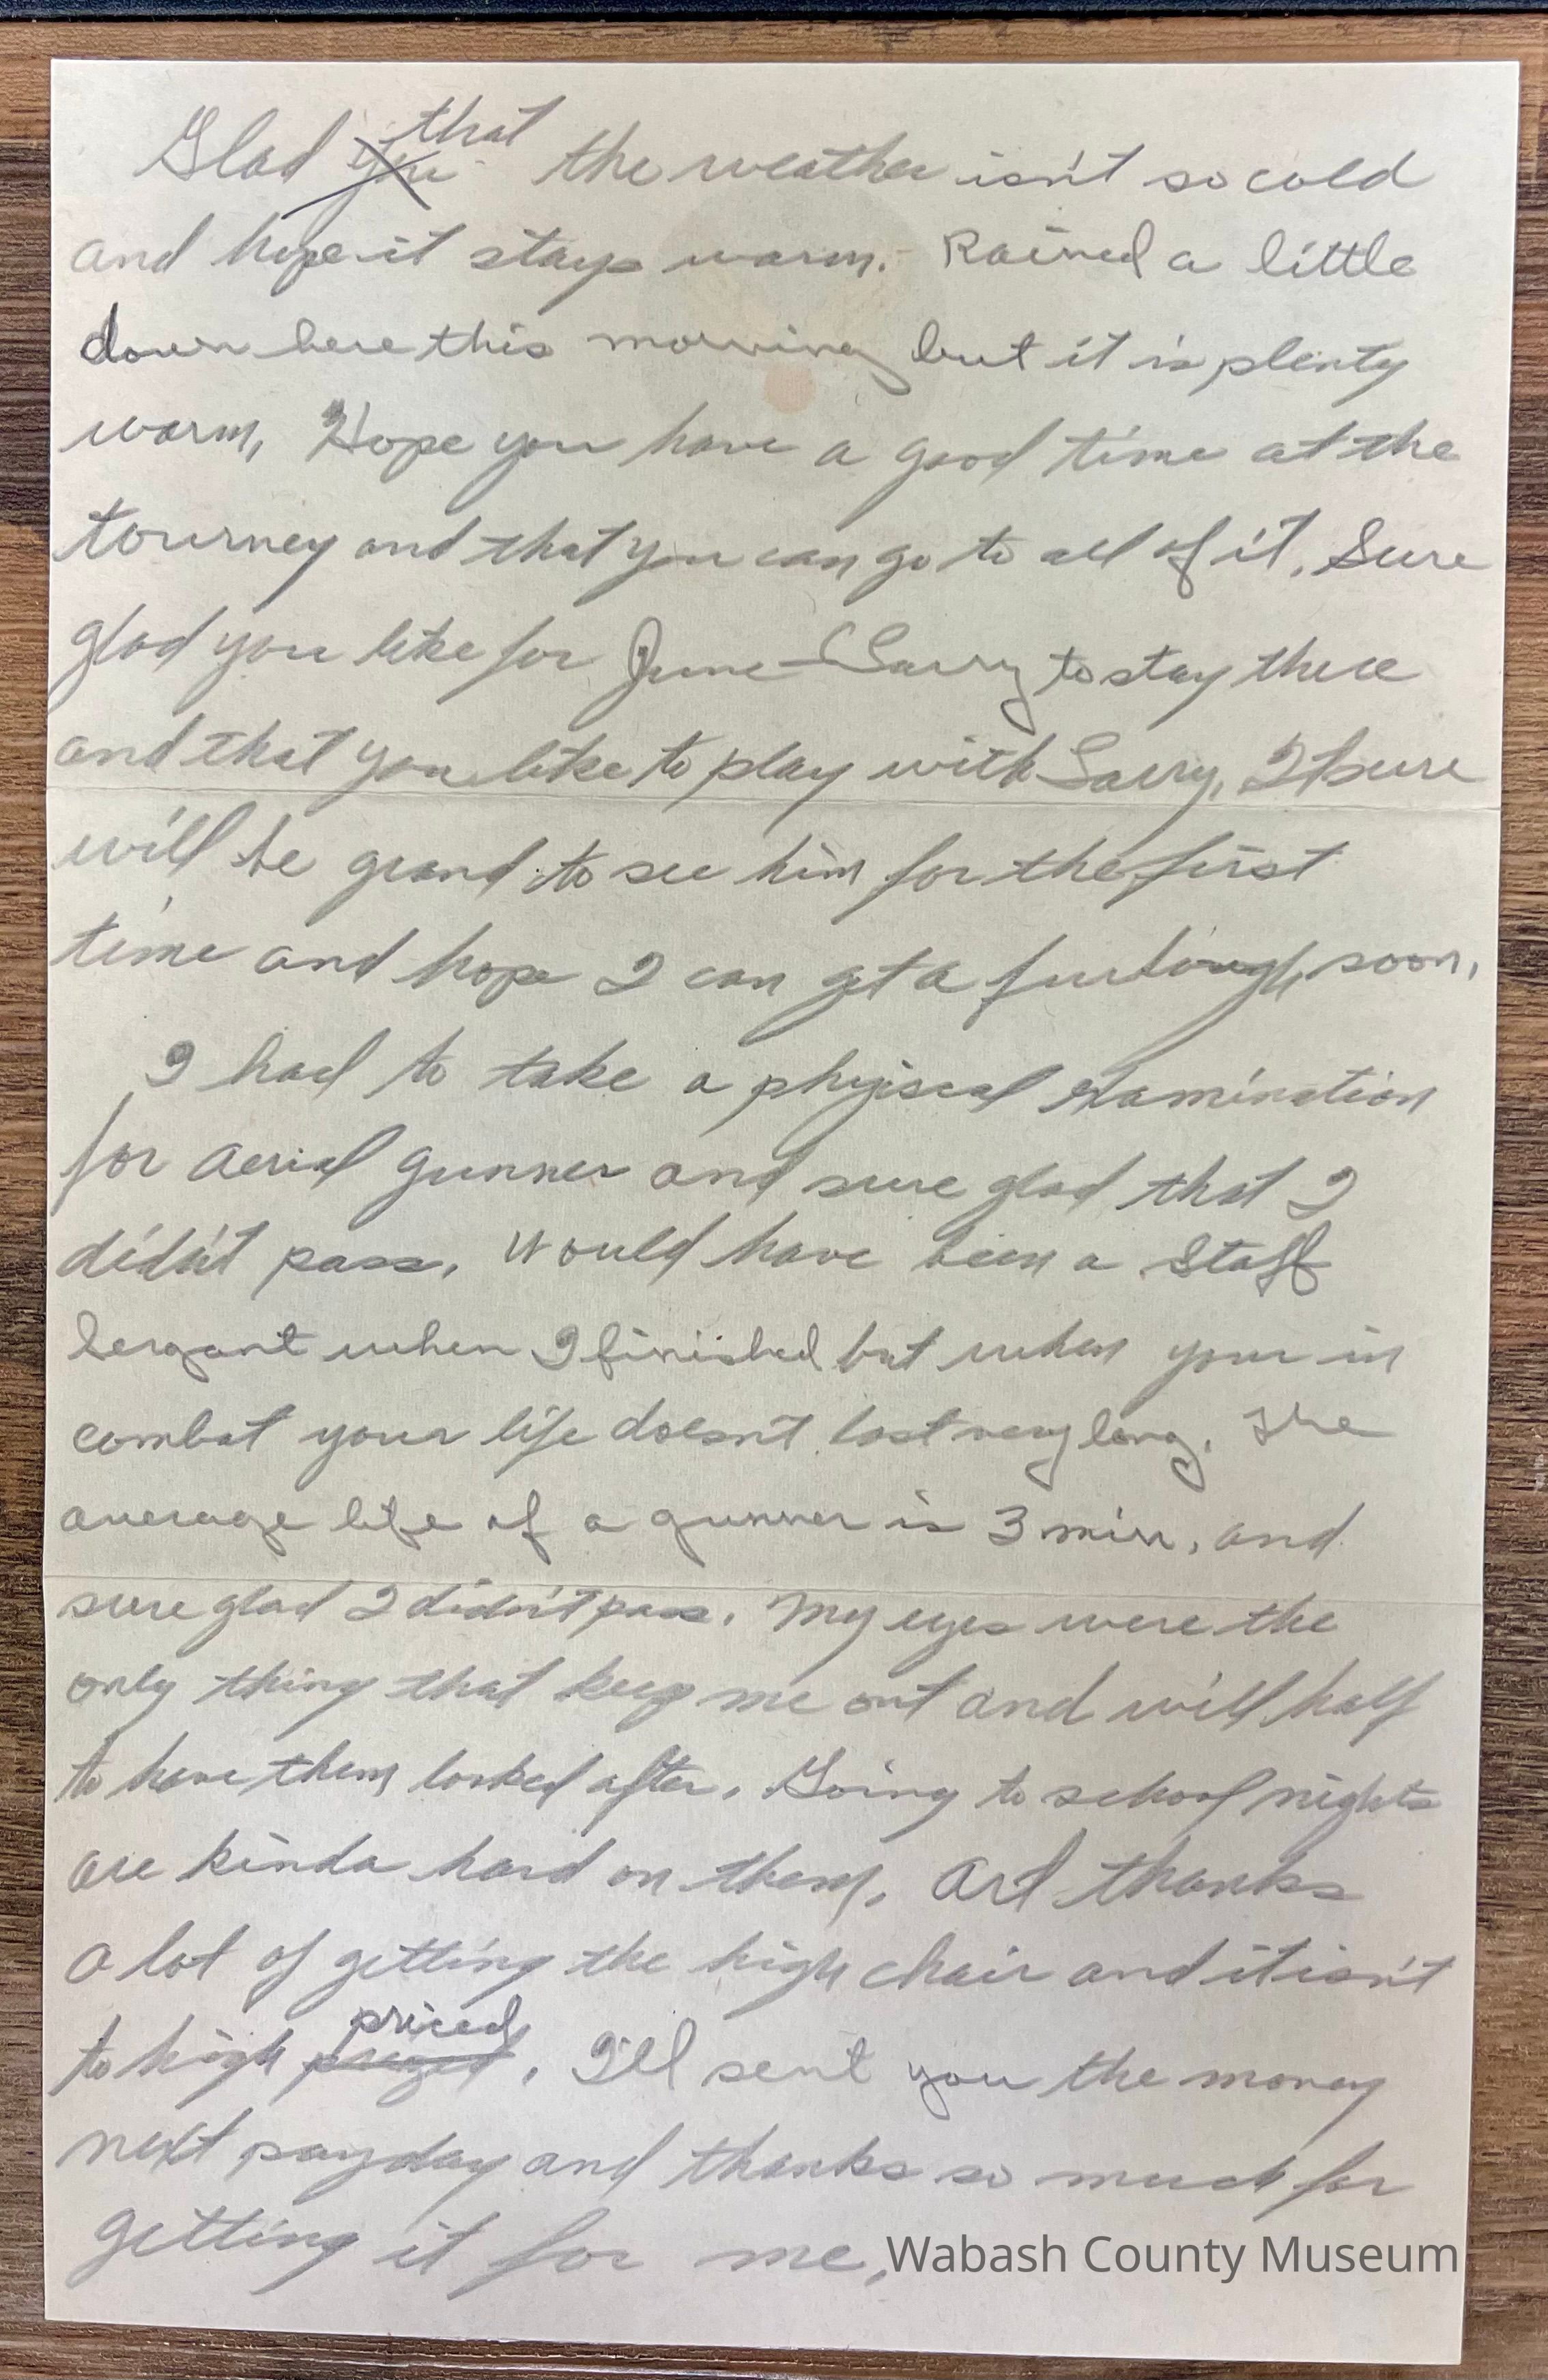 Glad you that the weather isn't so cold
and hope it stays warm. Rained a little
down here this morning but it is plenty
warm, Hope you have a good time at the
tourney and that you can go to all of it. Sure
glad you like for June - Larry to stay there
and that you like to play with Larry, It sure
will be grand to see him for the first
time and hope I can get a furlough soon,
I had to take a phyiscal examination
for aerial gunner and sure glad that I
didn't pass, Would have been a Staff
Sergant when I finished but when your in
combat your life doesn't last very long. The
average life of a gunner is 3 min, and
sure glad I didn't pass. My eyes were the
only thing that keep me out and will half
to have them looked after. Going to school nights
are kinda hard on them, Art thanks
a lot of getting the high chair and it isn't
to high priced, I'll sent you the money
next payday and thanks so much for
getting it for me,
Wabash County Museum